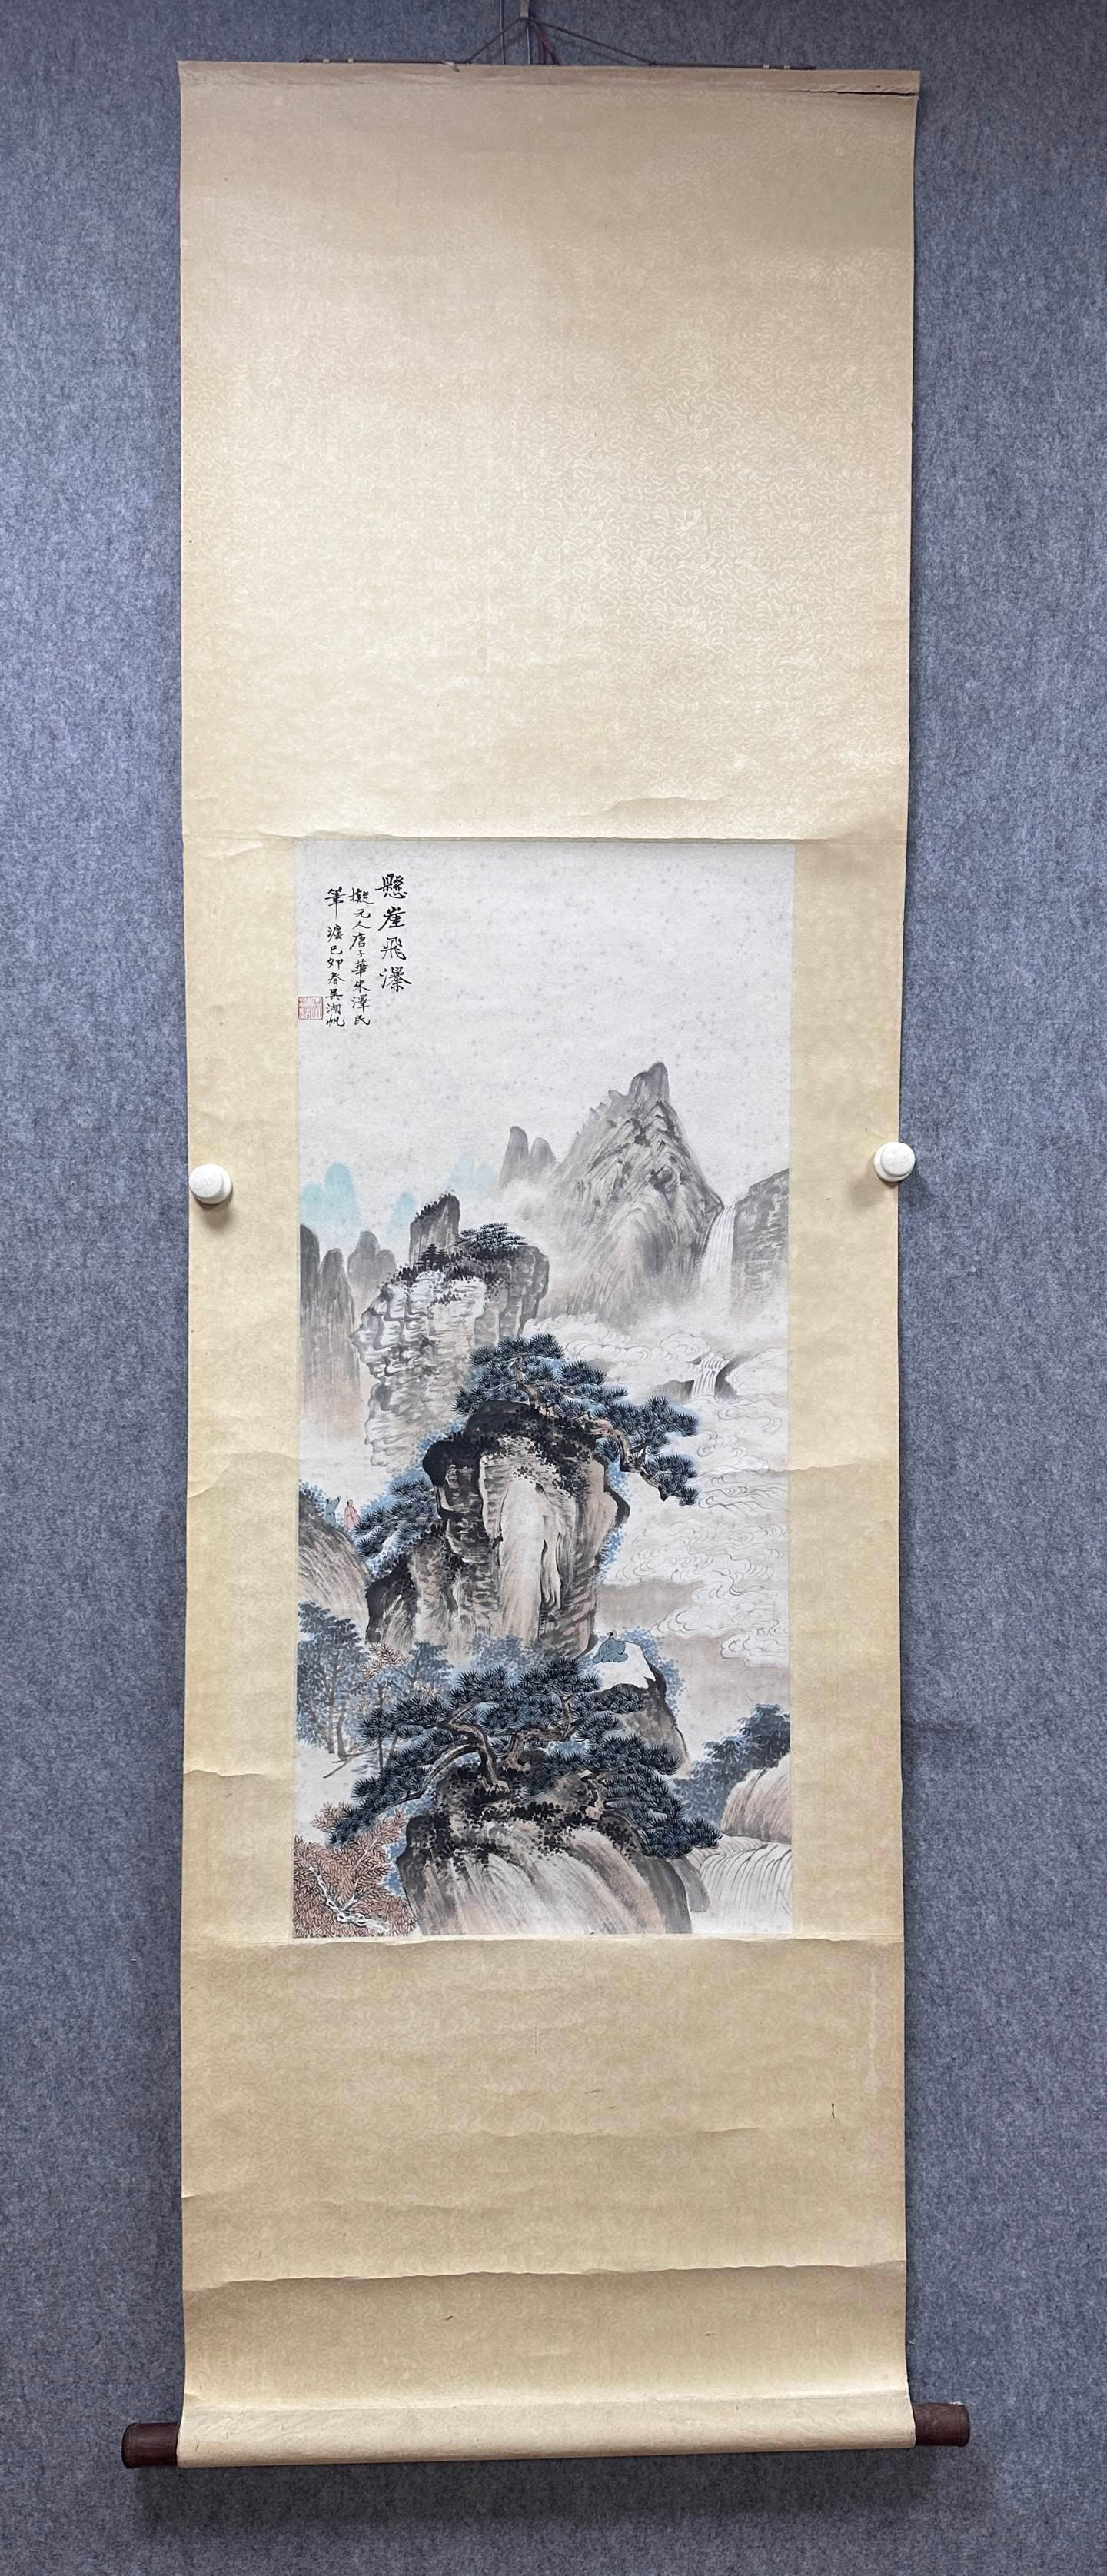 懸崖飛瀑
擬元人唐子華朱澤民
筆法己卯春吳湖帆